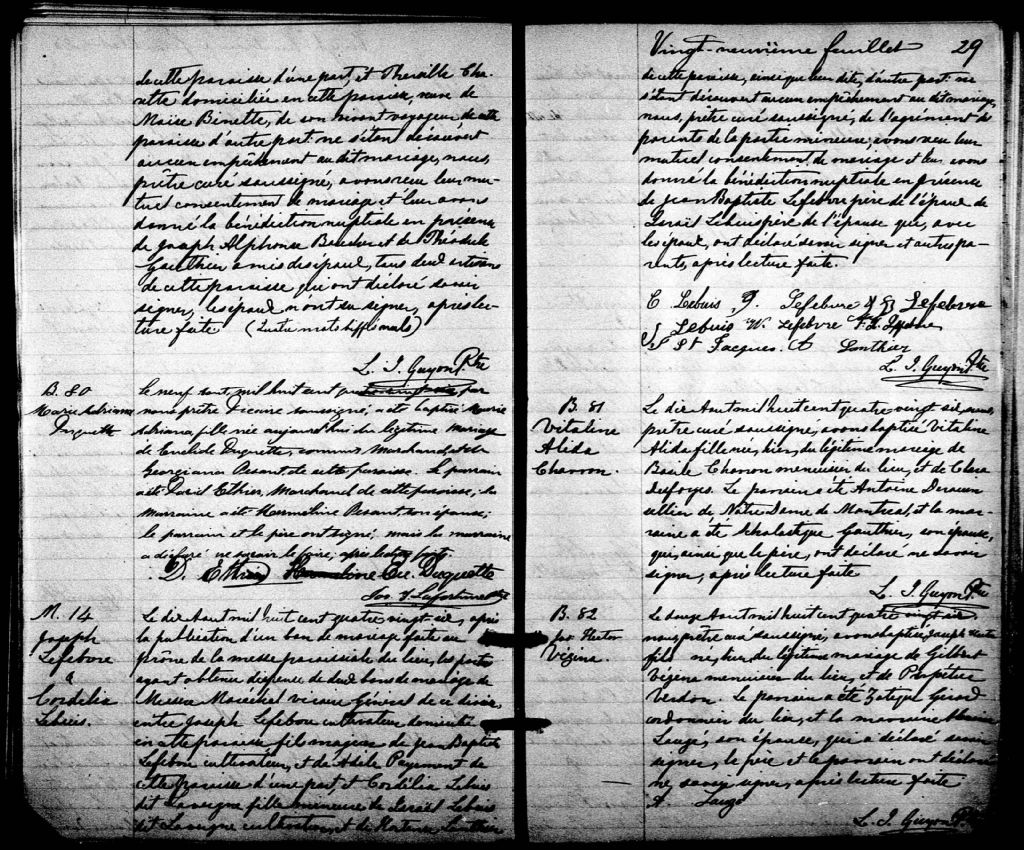 de cette paroisse d'une part, et Thereille Cha-
rette domiciliée en cette paroisse, veuve de
Moise Binette, de son vivant voyageur de cette
paroisse d'autre part ne s'étant découvert
aucun empêchement au dit mariage, nous,
prêtre curé soussigné, avons reçu leur mu-
tuel consentement de mariage et leur avons
donné la bénédiction nuptiale en présence
de Joseph Alphonse et de Théodule
Gauthier amis des époux, tous deux artisans
de cette paroisse qui ont déclaré savoir
signer, les époux n'ont su signer, après lec-
ture faite (Quatre mots biffés nuls)
L. J. Guyon Ptre
B. 80
Marie Adriana
Duquette
le neuf aout, mil huit cent par
nous prêtre vicaire soussigné, a été baptisé Marie
Adriana, fille née aujourd'hui du légitime mariage
de Euclide Duquette, commis Marchand, et de
Georgiana Pesant, de cette paroisse. Le parrain
a été David Ethier, Marchand de cette paroisse, la
marraine a été Herméline Pesant son épouse;
le parrain et le père ont signé, mais la marraine
a déclaré ne savoir le faire, après lecture faite.
D. Ethier Eu. Duquette
Jos. Lafortune Ptre
M. 14
Joseph
Lefebvre
&
Cordélia
Lebuis.
Le dix Aout mil huit cent quatre vingt six, après
la publication d'un ban de mariage faite au
prône de la messe paroissiale du lieu, les parties
ayant obtenu dispense de deux bans de mariage de
Messire Maréchal vicaire Général de ce diocèse,
entre Joseph Lefebvre cultivateur domicilié
en cette paroisse fils majeur de Jean Baptiste
Lefebvre cultivateur, et de Adèle Payment de
cette paroisse d'une part, et Cordélia Lebuis
dit Lavergne fille mineure de Israël Lebuis
dit Lavergne cultivateur, et de Hortense Gauthier
Vingt-neuvième feuillet 29
de cette paroisse, ainsi que leur dite, d'autre part ne
s'étant découvert aucun empêchement au dit mariage,
nous, prêtre curé soussigné, de l'agrément des
parents de la partie mineure, avons reçu leur
mutuel consentement de mariage et leur avons
donné la bénédiction nuptiale en présence
de Jean Baptiste Lefebvre père de l'époux, de
Israël Lebuis père de l'épouse qui, avec
les époux, ont déclaré savoir signer et autres pa-
rents, après lecture faite.
C Lebuis J. Lefebvre Lefebvre
J Lebuis W. Lefebvre
St Jacques. A Gauthier
L. J. Guyon Ptre
B. 81
Vitaline
Alida
Charron.
Le dix Aout mil huit cent quatre vingt six, nous
prêtre curé soussigné, avons baptisé Vitaline
Alida fille née, hier, du légitime mariage de
Basile Charron menuisier du lieu, et de Clara
Desforges. Le parrain a été Antoine
sellier de Notre Dame de Montreal, et la mar-
raine a été Scholastique Gauthier, son épouse,
qui, ainsi que le père, ont déclaré ne savoir
signer, après lecture faite
L. J. Guyon Ptre
B. 82
Jos Hector
Vézina.
Le douze Aout mil huit cent quatre vingt six
nous, prêtre curé soussigné, avons baptisé Joseph Hector
fils né, hier, du légitime mariage de Gilbert
Vézina menuisier du lieu, et de Perpétue
Verdon. Le parrain a été Zotique Girard
cordonnier du lieu, et la marraine
Laugé, son épouse, qui a déclaré savoir
signer, le père et le parrain ont déclaré
ne savoir signer, après lecture faite
A Laugé
L. J. Guyon Ptre